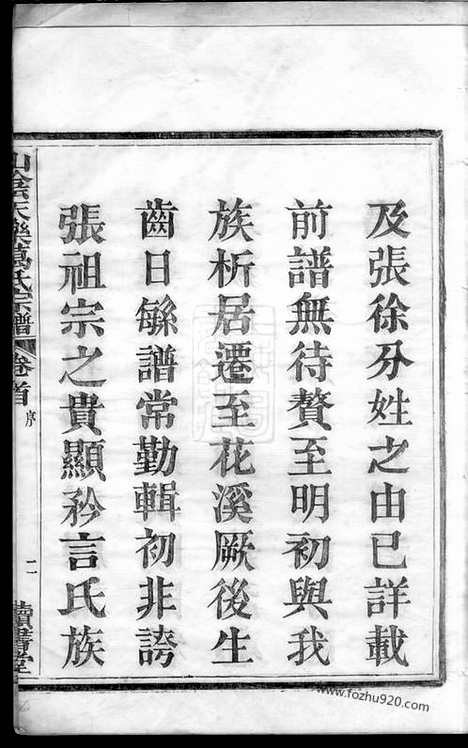 及張徐分姓之由已詳載
前譜無待贅至明初與我
族析居遷至花溪厥後生
齒日緐譜常勤輯初非誇
張祖宗之貴顯矜言氏族
山陰天樂葛氏宗譜
卷首
序
二
讀書堂
www.fozhu920.com